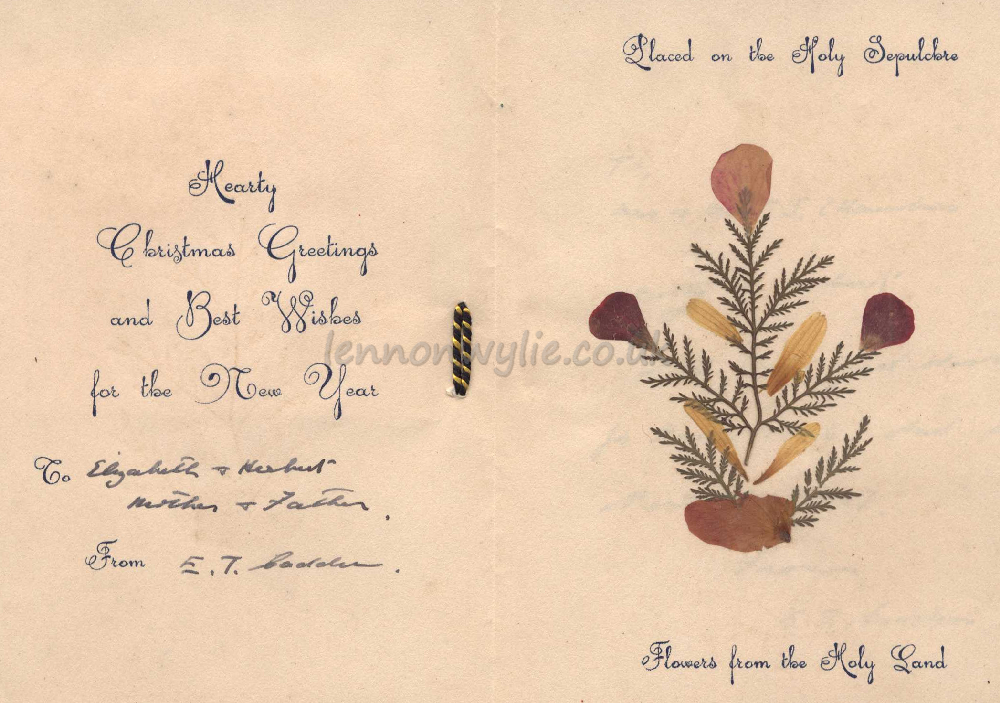 Hearty
Christmas Greetings
and Best Wishes
for the New Year
To Elizabeth + Herbert
Mother + Father.
From E. T.
Placed on the Holy Sepulchre
Flowers from the Holy Land
lennonwylie.co.uk